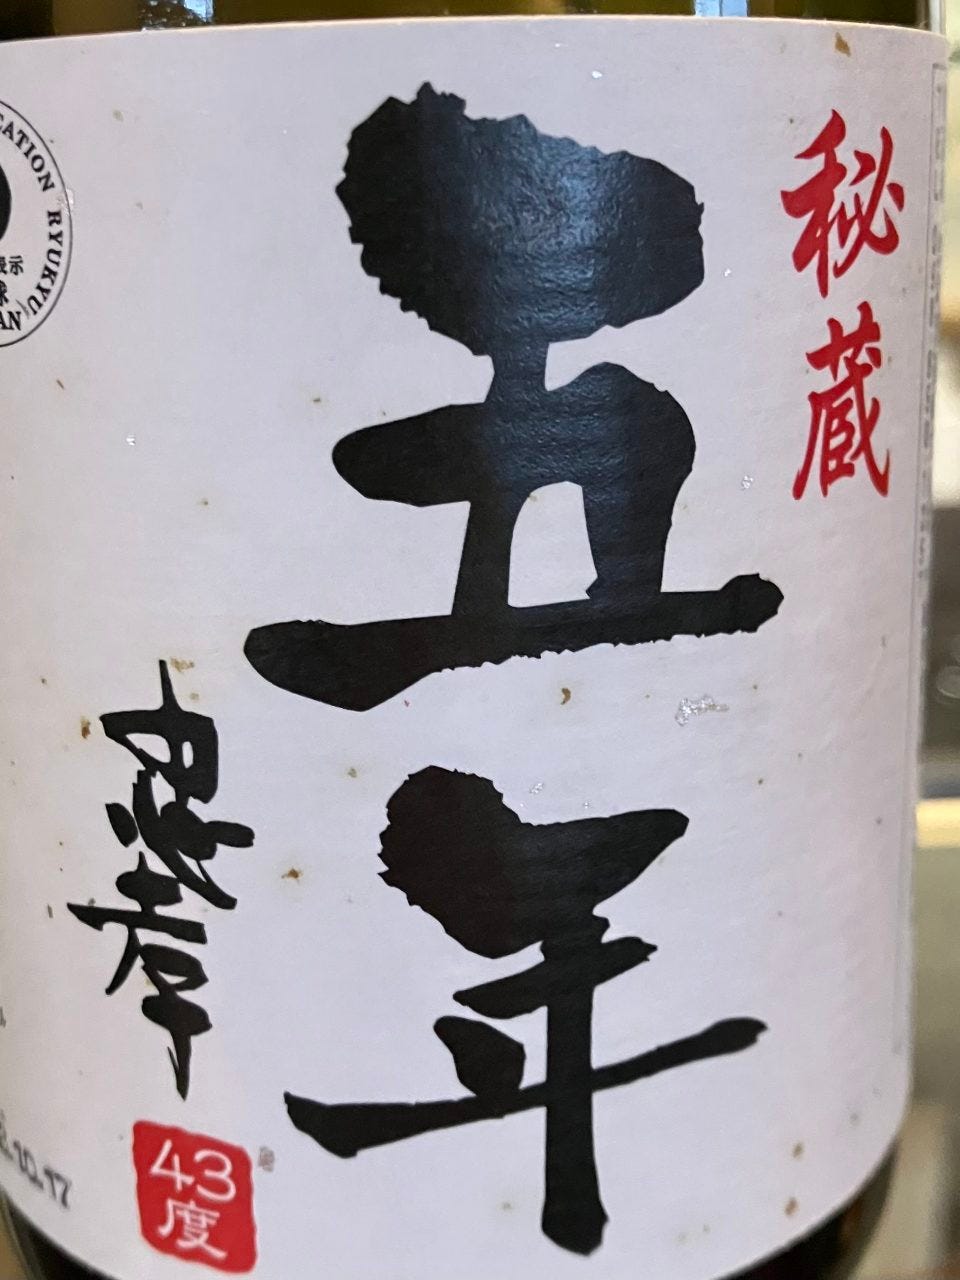 秘蔵
五年
忠孝
43
度
CATION RYUKYU
表示
球
AN
10.17